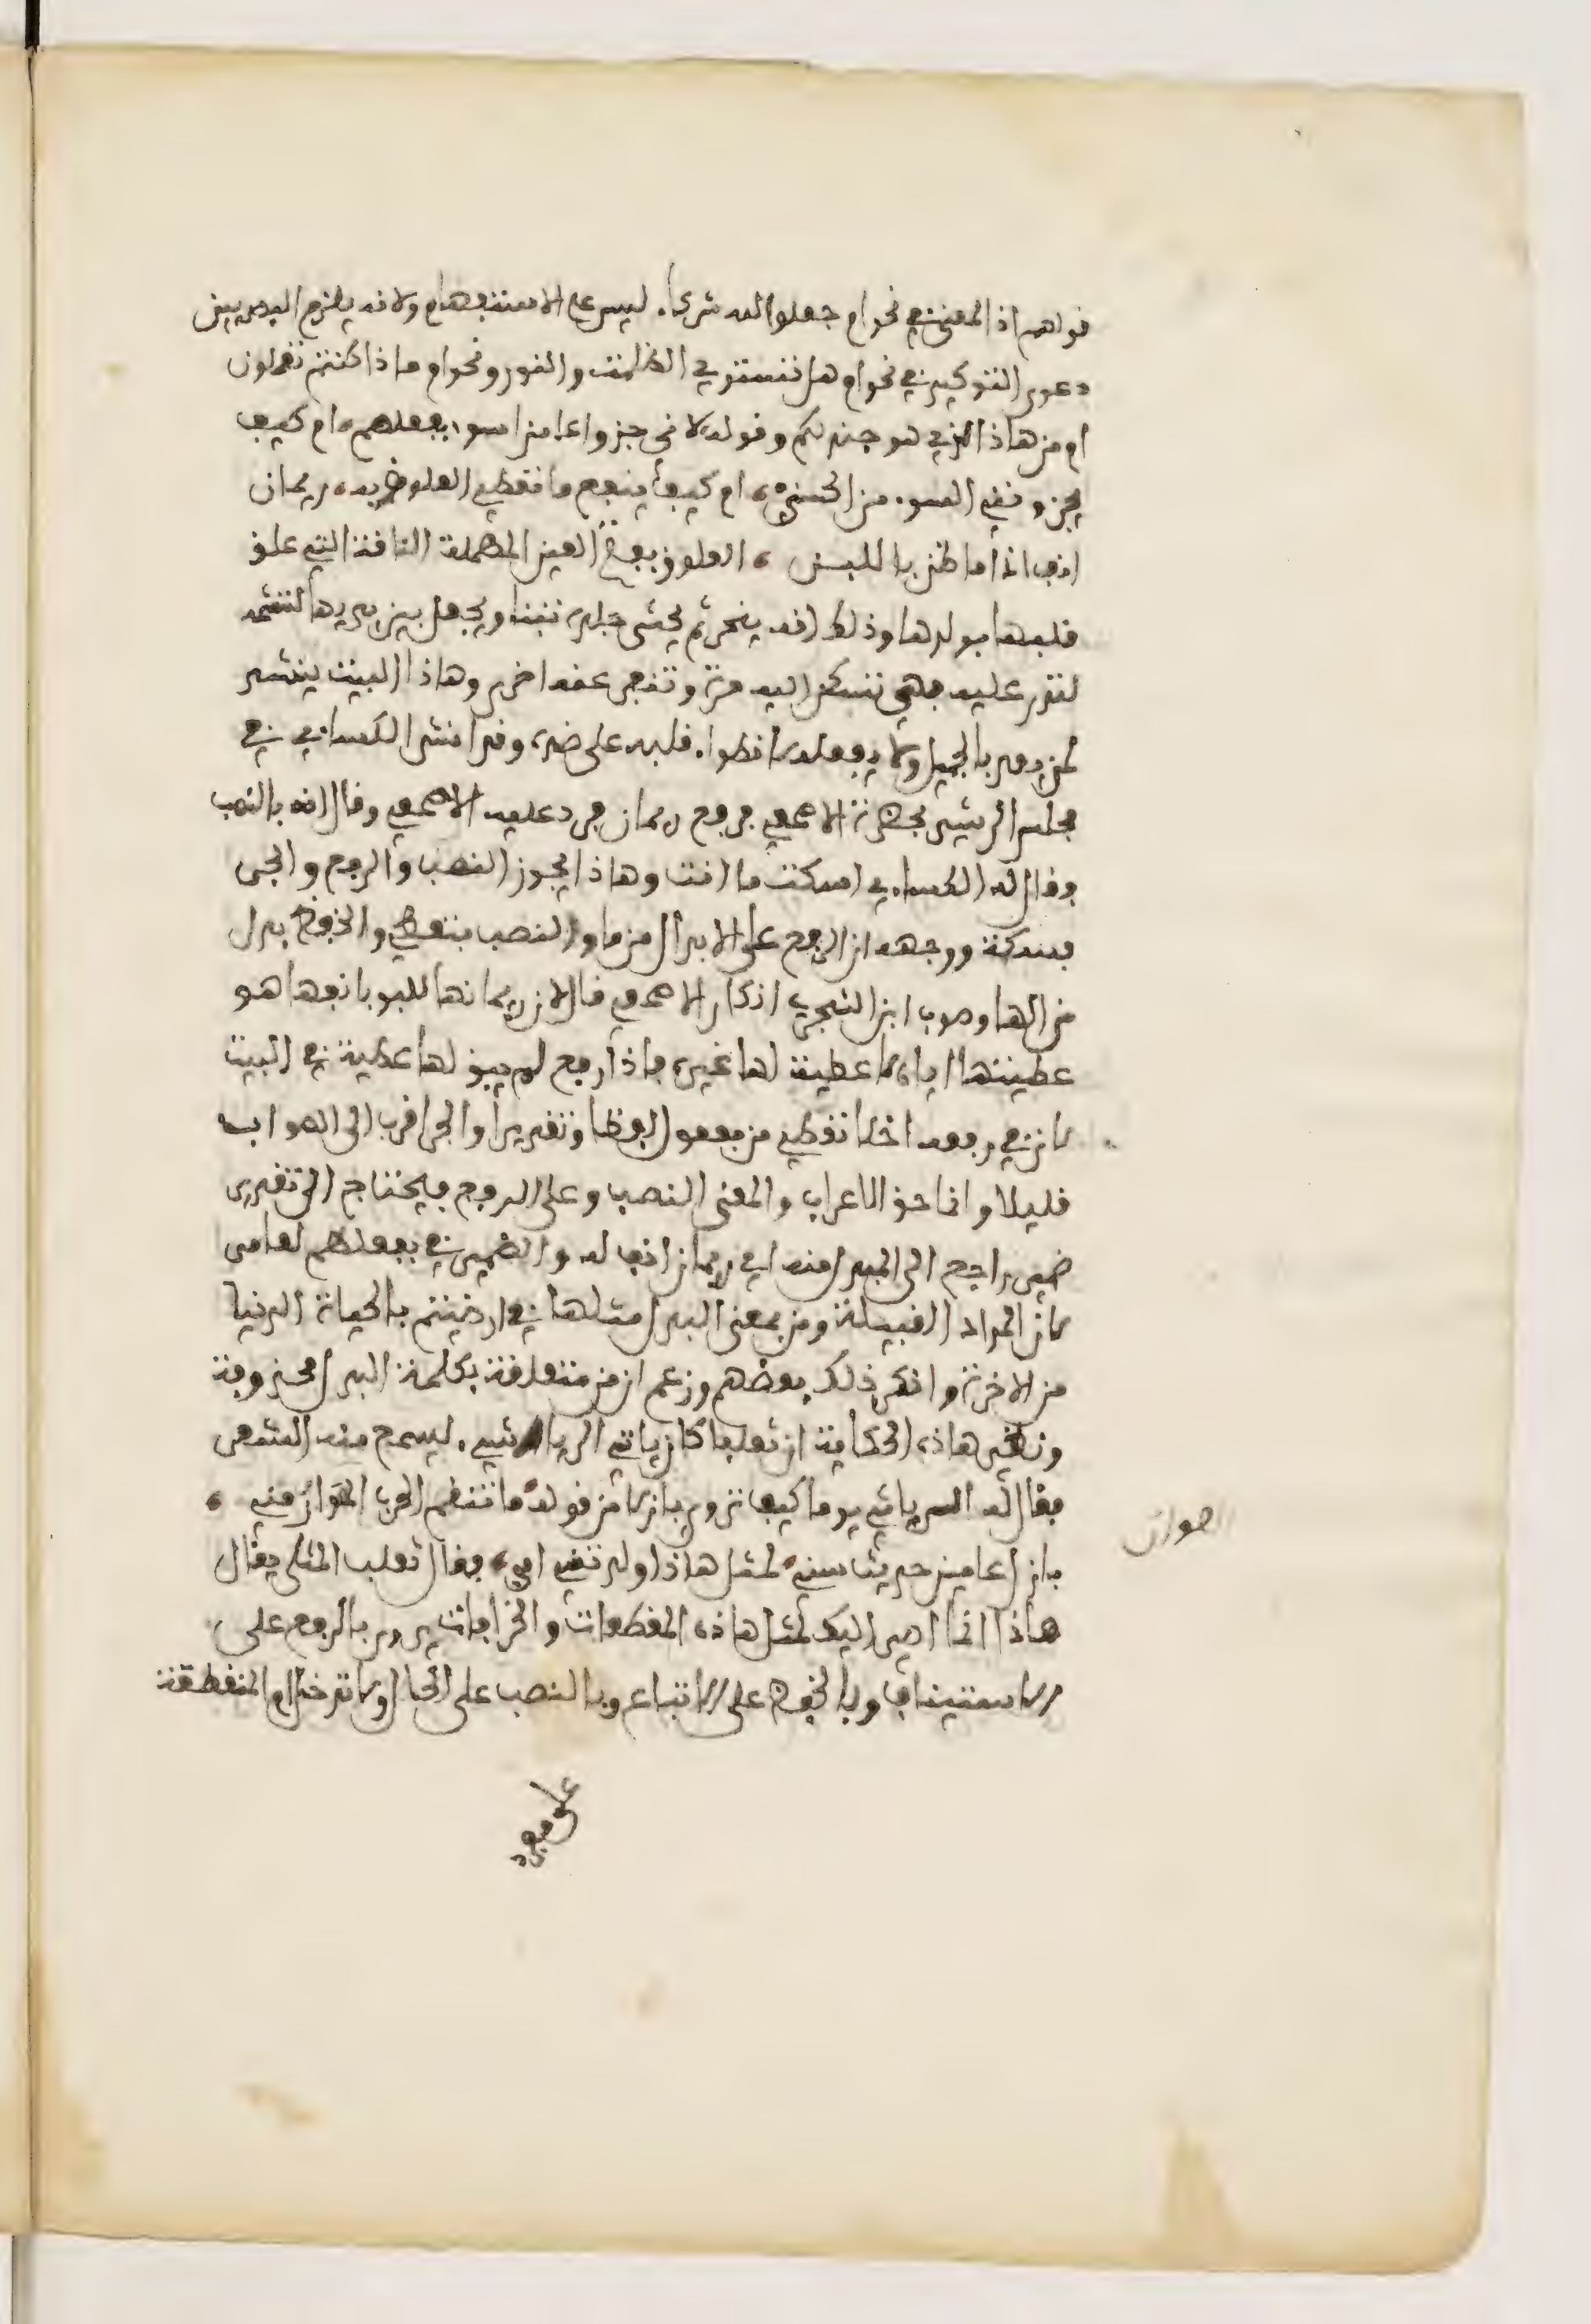 قولهم اذ المعنى في نحو ام جعلوا لله شركاء ليس على الاستفهام ولانه يلزم البصريين
دعوى التوكيد في نحو ام هل تستوي الظلمت والنور ونحو ام ماذا كنتم تعملون
ام من هاذا الذي هو جند لكم وقوله انى جزوا عامرا سوءا بفعلهم ام كيف
يجزونني السوء من الحسن ام كيف ينفع ما تعطي العلوق به ريمان
انف اذا ما ظن باللبن العلوق بفتح العين المهملة الناقة التي علق
قلبها بولدها وذلك انه ينحر ثم يحشى جلده تبنا ويجعل بين يديها لتشمه
لتدر عليه فهي تسكن اليه مرة وتنفر عنه اخرى وهاذا البيت ينشد
لمن يعد بالجميل ولا يفعله لانطواء قلبه على ضده وقد انشد الكساءي في
مجلس الرشيد بحضرة الاصمعي فرفع ريمان فرد عليه الاصمعي وقال انه بالنصب
فقال له الكساءي اسكت ما انت وهاذا يجوز النصب والرفع والجر
فسكت ووجهه ان الرفع على الابدال من ما والنصب بتعطي والخفض بدل
من الها وصوب ابن الشجري انكار الاصمعي قال لان ريمانها للبو بانفها هو
عطيتها اياه لا عطية لها غيره فاذا رفع لم يبق لها عطية في البيت
لان في رفعه اخلا تعطي من مفعول لفظا وتقديرا والجر اقرب الى الصواب
قليلا وانما حق الاعراب والمعنى النصب وعلى الرفع فيحتاج الى تقدير
ضمير راجع الى المبدل منه اي ريمان انف له والضمير في بفعلهم لعامر
لان المراد القبيلة ومن بمعنى البدل مثلها في ارضيتم بالحياة الدنيا
من الاخرة وانكر ذلك بعضهم وزعم ان من متعلقة بكلمة البدل محذوفة
ونظير هاذه الحكاية ان ثعلبا كان ياتي الرياشي ليسمع منه الشعر
فقال له الرياشي يوما كيف تروي بازلا من قوله ما تنقم الحرب العوان مني
بازل عامين حديث سني لمثل هاذا ولدتني امي فقال ثعلب المثلي يقال
هاذا انما اصير اليك لمثل هاذه المقطعات والخرافات يروى بالرفع على
الاستيناف وبالخفض على الاتباع وبالنصب على الحال ولا تدخل ام المنقطعة
على مفرد